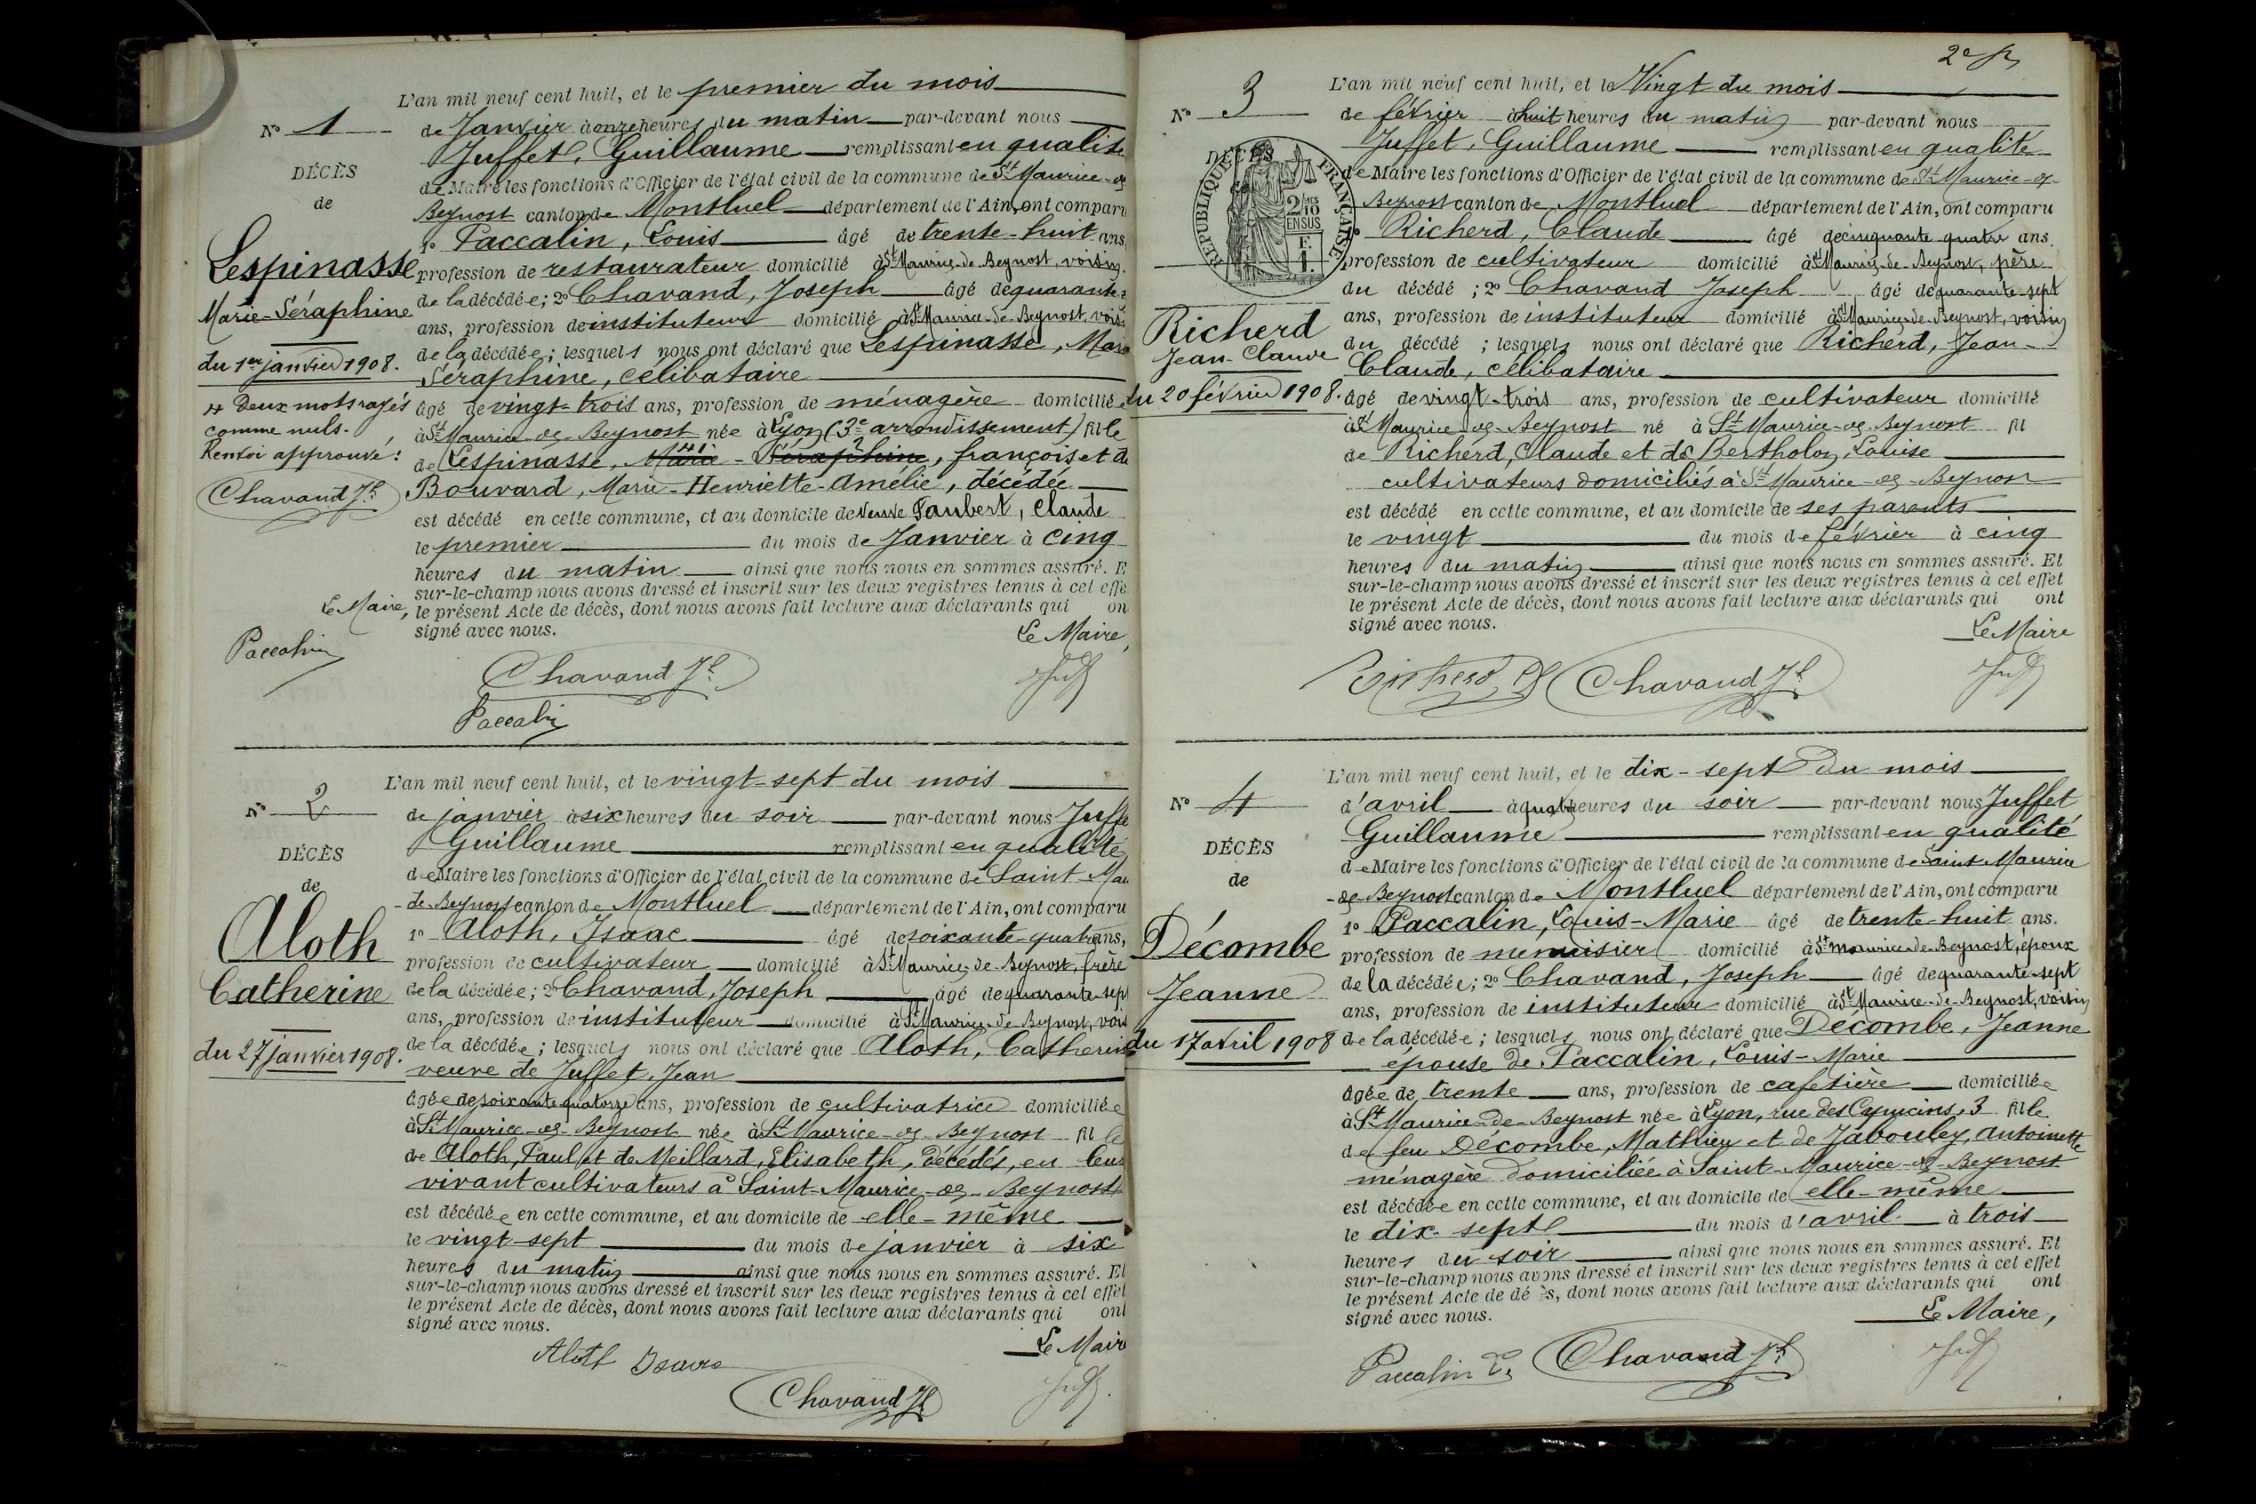 L'an mil neuf cent huit, et le premier du mois
N° 1
de Janvier à onze heures du matin par-devant nous
Juffet, Guillaume remplissant en qualité
DÉCÈS
de Maire les fonctions d'Officier de l'état civil de la commune de St Maurice-de
de
Beynost canton de Montluel département de l'Ain, ont comparu
1° Paccalin, Louis âgé de trente-huit ans,
Lespinasse
profession de restaurateur domicilié à St Maurice-de-Beynost, voisin
de la décédée; 2° Chavand, Joseph âgé de quarante-
Marie-Séraphine
ans, profession de instituteur domicilié à St Maurice-de-Beynost, voisin
de la décédée; lesquels nous ont déclaré que Lespinasse, Marie
du 1er janvier 1908.
Séraphine, célibataire
Deux mots rayés
comme nuls.
Renvoi approuvé!
Chavand Jh
âgé de vingt-trois ans, profession de ménagère domiciliée
à St Maurice-de-Beynost née à Lyon (3e arrondissement) fille
de Lespinasse, Marie-Séraphine, françois et de
Bouvard, Marie-Henriette-Amélie, décédée
est décédé en cette commune, et au domicile de veuve Paubert, Claude
le premier du mois de Janvier à cinq
heures du matin ainsi que nous nous en sommes assuré. E
sur-le-champ nous avons dressé et inscrit sur les deux registres tenus à cet effe
le présent Acte de décès, dont nous avons fait lecture aux déclarants qui on
signé avec nous.
Le Maire,
Le Maire,
Paccalin
Chavand Jh
Juff
Paccalin
L'an mil neuf cent huit, et le vingt-sept du mois
N° 2
de janvier à six heures du soir par-devant nous Juffe
Guillaume remplissant en qualité
DÉCÈS
de Maire les fonctions d'Officier de l'état civil de la commune de Saint-Mau
de
-de-Beynost canton de Montluel département de l'Ain, ont comparu
Aloth
1° Aloth, Isaac âgé de soixante-quatre ans,
profession de cultivateur domicilié à St Maurice-de-Beynost, frère
Catherine
de la décédée; 2° Chavand, Joseph âgé de quarante-sept
ans, profession de instituteur domicilié à St Maurice-de-Beynost, vois
du 27 janvier 1908.
de la décédée; lesquels nous ont déclaré que Aloth, Catherine
veuve de Juffet, Jean
âgée de soixante quatorze ans, profession de cultivatrice domiciliée
à St Maurice-de-Beynost née à St Maurice-de-Beynost fille
de Aloth, Paul et de Meillard, Elisabeth, décédés, en leur
vivant cultivateurs à Saint-Maurice-de-Beynost
est décédée en cette commune, et au domicile de elle-même
le vingt-sept du mois de janvier à six
heures du matin ainsi que nous nous en sommes assuré. Et
sur-le-champ nous avons dressé et inscrit sur les deux registres tenus à cet effet
le présent Acte de décès, dont nous avons fait lecture aux déclarants qui ont
signé avec nous.
Le Maire
Aloth Isaac
Chavand Jh
Juff
2e f
L'an mil neuf cent huit, et le Vingt du mois
N° 3
de février à huit heures du matin par-devant nous
Juffet, Guillaume remplissant en qualité
DÉCÈS
RÉPUBLIQUE FRANÇAISE
2/10 EN SUS
F. 1.
de Maire les fonctions d'Officier de l'état civil de la commune de St Maurice-de-
Beynost canton de Montluel département de l'Ain, ont comparu
1° Richerd, Claude âgé de cinquante quatre ans.
profession de cultivateur domicilié à St Maurice-de-Beynost, père
du décédé ; 2° Chavand Joseph âgé de quarante-sept
Richerd
ans, profession de instituteur domicilié à St Maurice-de-Beynost, voisin
Jean-Claude
du décédé ; lesquels nous ont déclaré que Richerd, Jean-
Claude, célibataire
du 20 février 1908.
âgé de vingt-trois ans, profession de cultivateur domicilié
à St Maurice-de-Beynost né à St Maurice-de-Beynost fil
de Richerd, Claude et de Bertholon, Louise
cultivateurs domiciliés à St Maurice-de-Beynost
est décédé en cette commune, et au domicile de ses parents
le vingt du mois de février à cinq
heures du matin ainsi que nous nous en sommes assuré. Et
sur-le-champ nous avons dressé et inscrit sur les deux registres tenus à cet effet
le présent Acte de décès, dont nous avons fait lecture aux déclarants qui ont
signé avec nous.
Le Maire
Richerd Cl
Chavand Jh
Juff
L'an mil neuf cent huit, et le dix-sept du mois
N° 4
d'avril à quatre heures du soir par-devant nous Juffet
Guillaume remplissant en qualité
DÉCÈS
de Maire les fonctions d'Officier de l'état civil de la commune de Saint-Maurice
de
-de-Beynost canton de Montluel département de l'Ain, ont comparu
1° Paccalin, Louis-Marie âgé de trente-huit ans.
Décombe
profession de menuisier domicilié à St Maurice-de-Beynost, époux
de la décédée; 2° Chavand, Joseph âgé de quarante-sept
Jeanne
ans, profession de instituteur domicilié à St Maurice-de-Beynost, voisin
du 17 avril 1908
de la décédée; lesquels nous ont déclaré que Décombe, Jeanne
épouse de Paccalin, Louis-Marie
âgée de trente ans, profession de cafetière domiciliée
à St Maurice-de-Beynost née à Lyon, rue des Capucins, 3 fille
de feu Décombe, Mathieu et de Jaboulez, Antoinette
ménagère domiciliée à Saint-Maurice-de-Beynost
est décédée en cette commune, et au domicile de elle-même
le dix-sept du mois d'avril à trois
heures du soir ainsi que nous nous en sommes assuré. Et
sur-le-champ nous avons dressé et inscrit sur les deux registres tenus à cet effet
le présent Acte de décès, dont nous avons fait lecture aux déclarants qui ont
signé avec nous.
Le Maire,
Paccalin L.
Chavand Jh
Juff